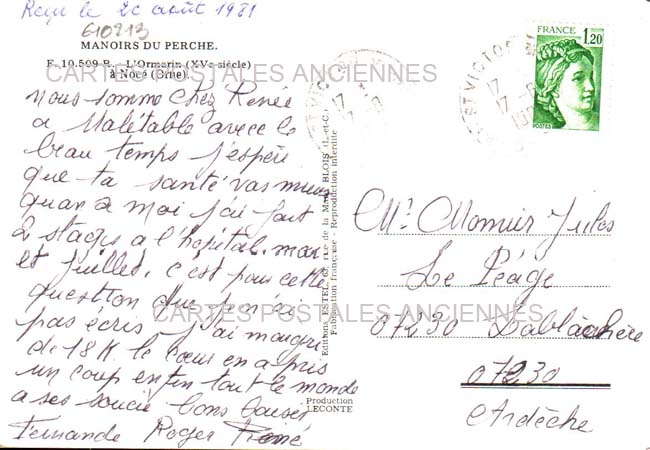 Reçu le 20 août 1981
610213
MANOIRS DU PERCHE.
E. 10.599 B. - L'Ormarin (XVe siècle)
à Nocé (Orne).
CARTES POSTALES ANCIENNES
nous somme chez Renée
a Malétable avec le
beau temps j'espère
que ta santé vas mieux
quan a moi j'ai fait
2 stages a l'hôpital. mai
et juillet. c'est pour cette
question que je n'ai
pas écris j'ai maigri
de 18 K. le cœur en a pris
un coup enfin tout le monde
a ses soucie bons baises
Fernande Roger René
Fabrication française - Reproduction interdite
Production
LECONTE
FRANCE
1,20
POSTES
ST VICTOR
17
17
Mr Monnier Jules
Le Péage
CARTES POSTALES ANCIENNES
07230 Lablachère
07230
Ardèche